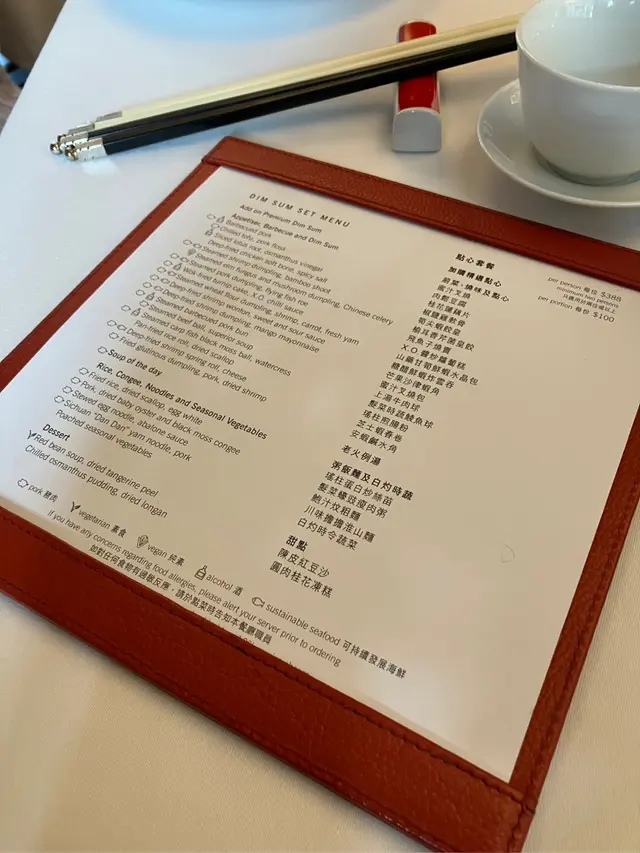 DIM SUM SET MENU
Add on Premium Dim Sum
Appetiser, Barbecue and Dim Sum
Barbecued pork
Chilled tofu, pork floss
Sliced lotus root, osmanthus vinegar
Deep-fried chicken soft bone, spicy salt
Steamed shrimp dumpling, bamboo shoot
Steamed elm fungus and mushroom dumpling, Chinese celery
Steamed pork dumpling, flying fish roe
Wok-fried turnip cake, X.O. chilli sauce
Steamed wheat flour dumpling, shrimp, carrot, fresh yam
Deep-fried shrimp wonton, sweet and sour sauce
Deep-fried shrimp dumpling, mango mayonnaise
Steamed barbecued pork bun
Steamed beef ball, superior soup
Steamed carp fish black moss ball, watercress
Pan-fried rice roll, dried scallop
Deep-fried shrimp spring roll, cheese
Fried glutinous dumpling, pork, dried shrimp
Soup of the day
Rice, Congee, Noodles and Seasonal Vegetables
Fried rice, dried scallop, egg white
Pork, dried baby oyster and black moss congee
Stewed egg noodle, abalone sauce
Sichuan "Dan Dan" yam noodle, pork
Poached seasonal vegetables
Dessert
Red bean soup, dried tangerine peel
Chilled osmanthus pudding, dried longan
點心套餐
加購精選點心
前菜、燒味及點心
蜜汁叉燒
肉鬆豆腐
桂花蓮藕片
椒鹽雞軟骨
筍尖蝦餃皇
榆耳香芹菌菜餃
飛魚子燒賣
X.O.醬炒蘿蔔糕
山藥甘筍鮮蝦水晶包
糖醋鮮蝦炸雲吞
芒果沙律蝦角
蜜汁叉燒包
上湯牛肉球
髮菜時蔬鯪魚球
瑤柱煎腸粉
芝士蝦春卷
安蝦鹹水角
老火例湯
粥飯麵及日灼時蔬
瑤柱蛋白炒絲苗
髮菜蠔豉瘦肉粥
鮑汁炆粗麵
川味擔擔淮山麵
日灼時令蔬菜
甜點
陳皮紅豆沙
圓肉桂花凍糕
per person 每位 $388
minimum two persons
只適用於兩位或以上
per portion 每份 $100
pork 豬肉 vegetarian 素食 vegan 純素 alcohol 酒 sustainable seafood 可持續發展海鮮
If you have any concerns regarding food allergies, please alert your server prior to ordering
如對任何食物有過敏反應，請於點菜時告知本餐廳職員